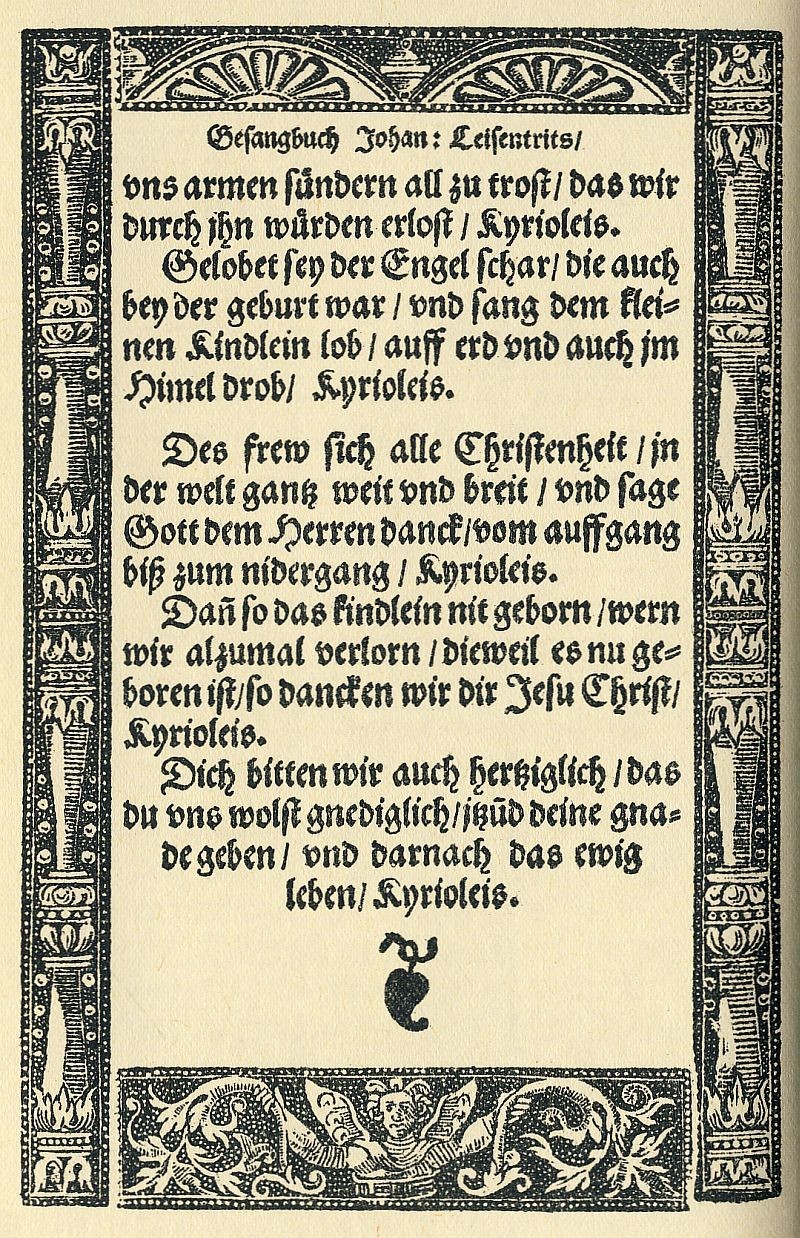 Gesangbuch Johan: Leisentrits/
vns armen sündern all zu trost/ das wir
durch jhn würden erlost / Kyrioleis.
Gelobet sey der Engel schar/ die auch
bey der geburt war / vnd sang dem klei=
nen Kindlein lob / auff erd vnd auch jm
Himel drob/ Kyrioleis.
Des frew sich alle Christenheit / jn
der welt gantz weit vnd breit / vnd sage
Gott dem Herren danck/vom auffgang
biß zum nidergang / Kyrioleis.
Dañ so das kindlein nit geborn /wern
wir alzumal verlorn / dieweil es nu ge=
boren ist/so dancken wir dir Jesu Christ/
Kyrioleis.
Dich bitten wir auch hertziglich / das
du vns wolst gnediglich/jtzūd deine gna=
de geben / vnd darnach das ewig
leben/ Kyrioleis.